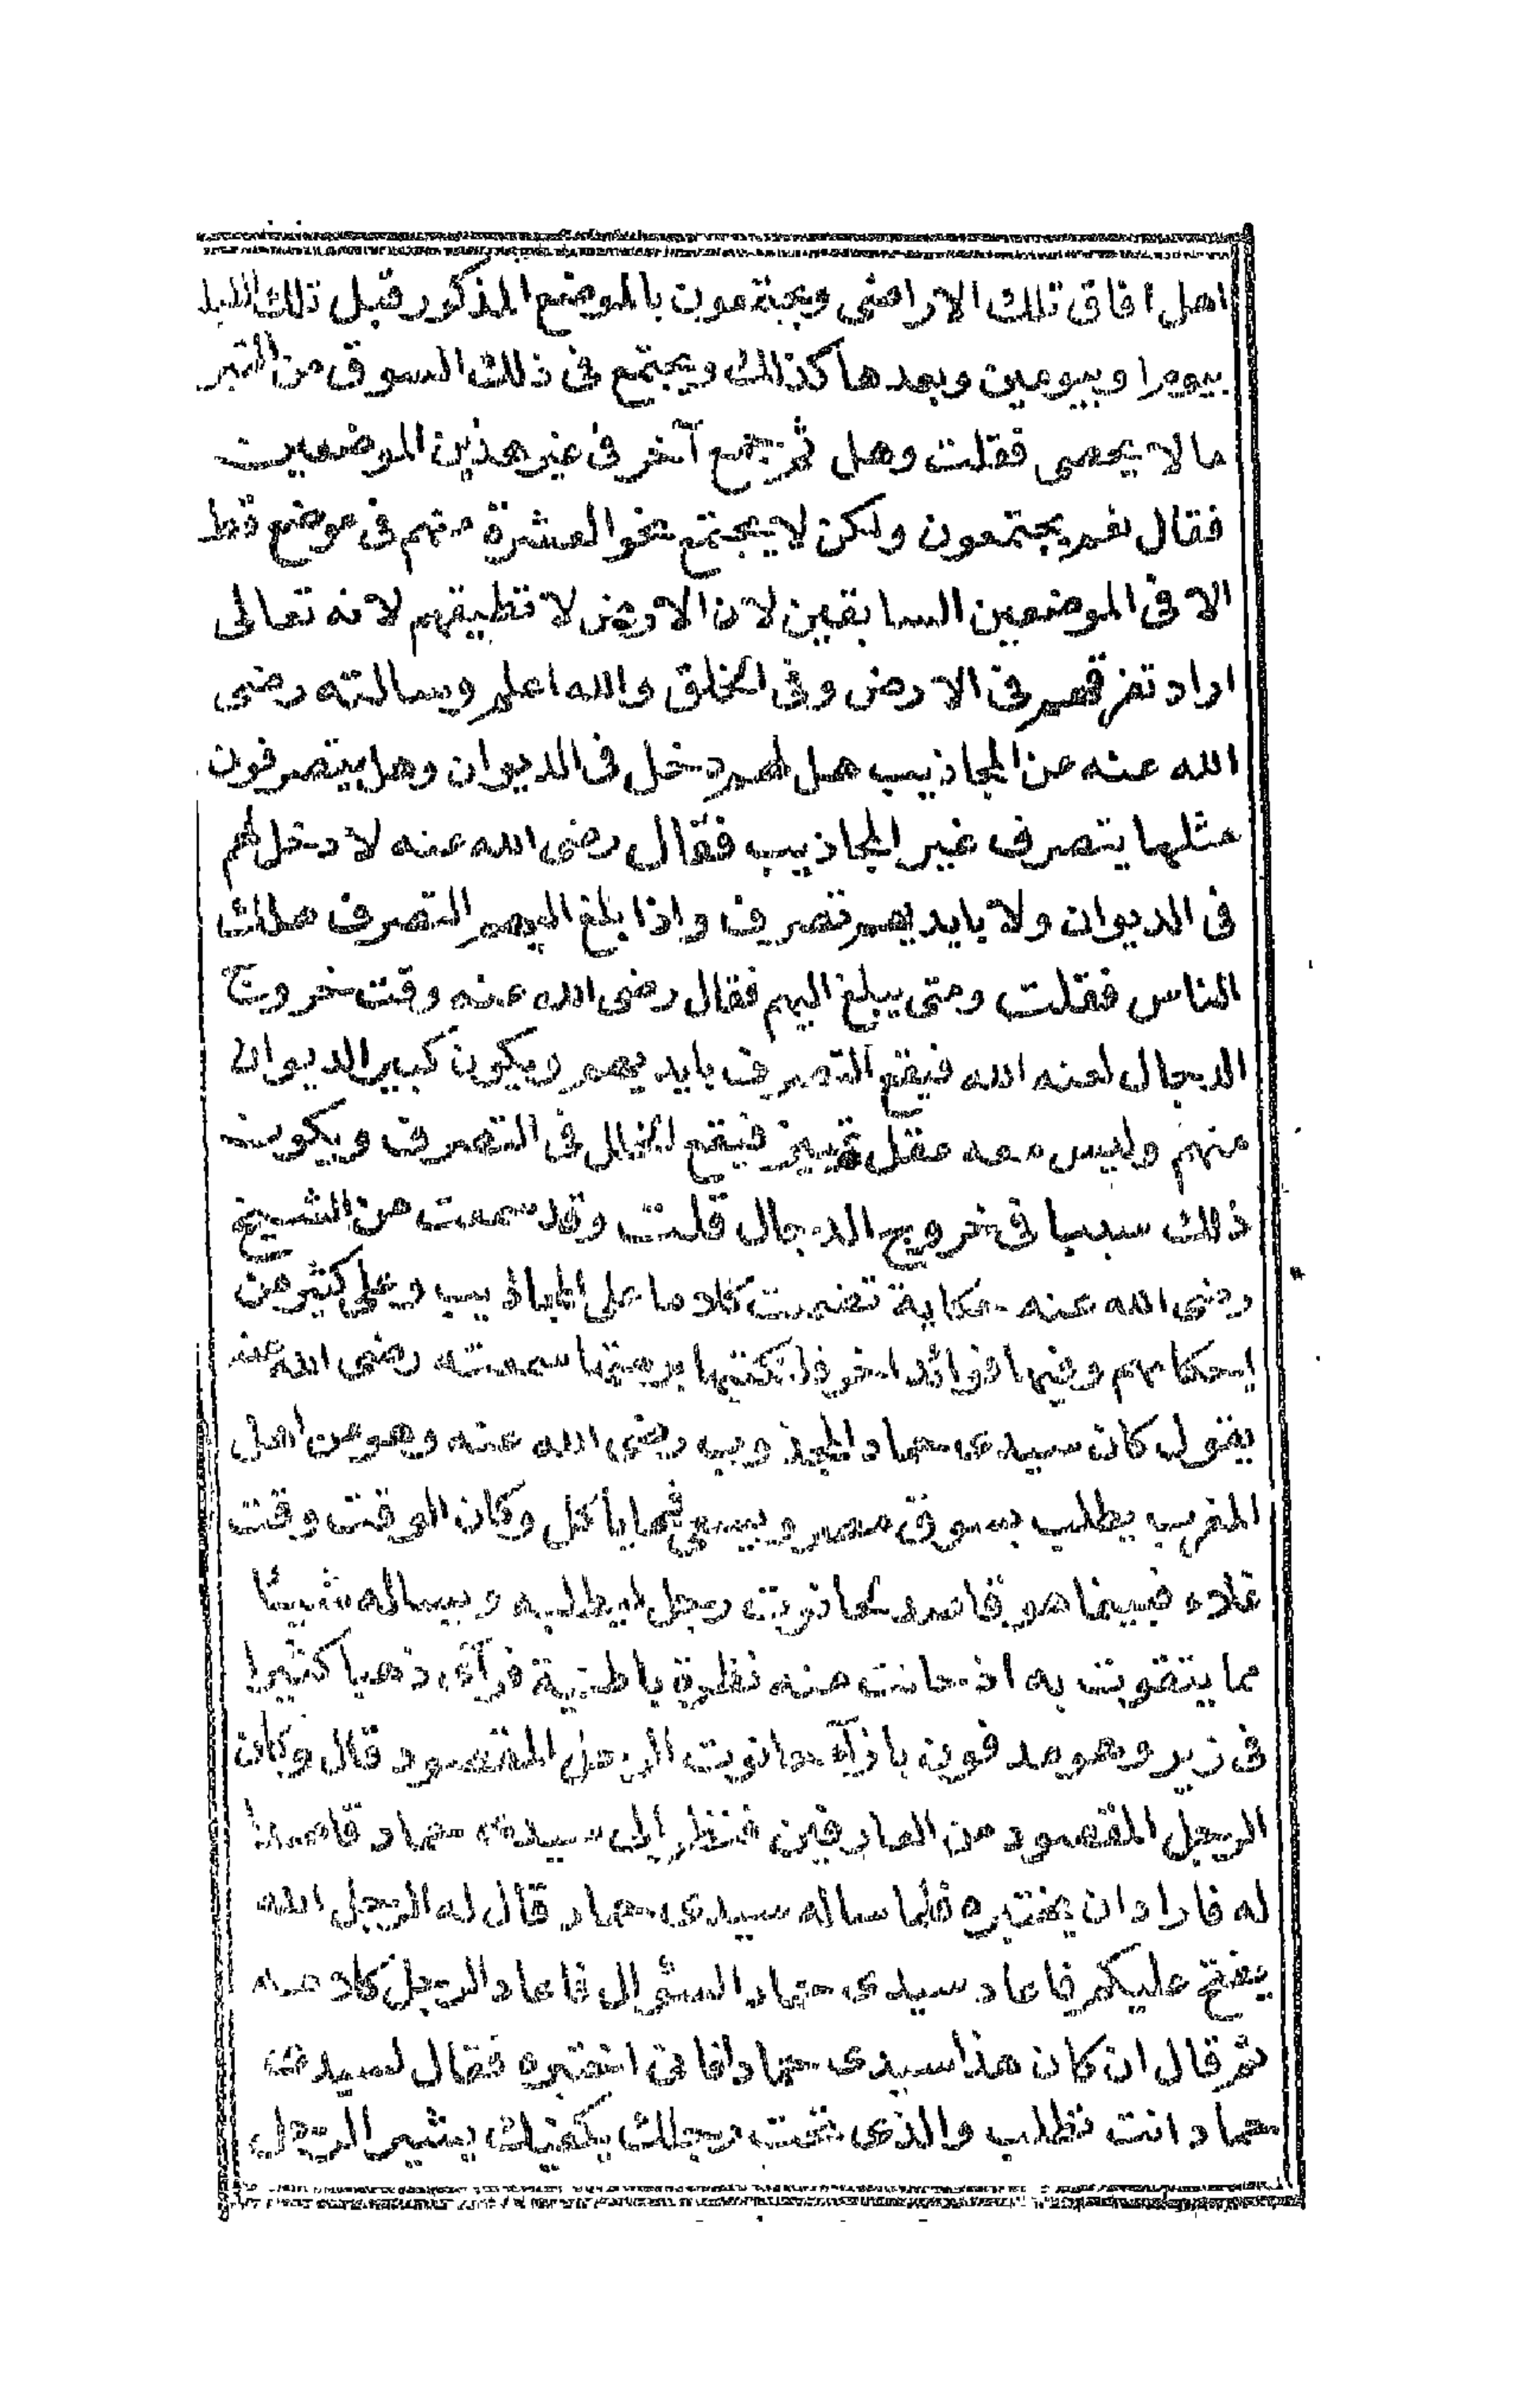 اهل افاق تلك الاراضى ويجتمعون بالموضع المذكور قبل تلك الليلة
بيوم او بيومين وبعدها كذلك ويجتمع فى ذلك السوق من التبر
ما لا يحصى فقلت وهل ثم جمع آخر فى غير هذين الموضعين
فقال نعم يجتمعون ولكن لا يجتمع نحو العشرة منهم فى موضع قط
الا فى الموضعين السابقين لان الارض لا تطيقهم لانه تعالى
اراد تفرقهم فى الارض وفى الخلق والله اعلم وسالته رضى
الله عنه عن المجاذيب هل لهم دخل فى الديوان وهل يتصرفون
مثلما يتصرف غير المجاذيب فقال رضى الله عنه لا دخل لهم
فى الديوان ولا بايديهم تصرف واذا بلغ اليهم التصرف هلك
الناس فقلت ومتى يبلغ اليهم فقال رضى الله عنه وقت خروج
الدجال لعنه الله فيقع التصرف بايديهم ويكون كبير الديوان
منهم وليس معه عقل تمييز فيقع الخلل فى التصرف ويكون
ذلك سببا فى خروج الدجال قلت وقد سمعت من الشيخ
رضى الله عنه حكاية تضمنت كلاما على المجاذيب وعلى كثير من
احكامهم وفيها فوائد اخر فلنكتبها برمتها سمعته رضى الله عنه
يقول كان سيدى حماد المجذوب رضى الله عنه وهو من اهل
المغرب يطلب بسوق مصر ويسعى فيما ياكل وكان الوقت وقت
غلاء فبينما هو قاصد لحانوت رجل ليطلبه ويساله شيئا
مما يتقوت به اذ حانت منه نظرة باطنية فرآى ذهبا كثيرا
فى زير وهو مدفون بازآء حانوت الرجل المقصود قال وكان
الرجل المقصود من العارفين فنظر الى سيدى حماد قاصدا
له فاراد ان يختبره فلما ساله سيدى حماد قال له الرجل الله
يفتح عليكم فاعاد سيدى حماد السؤال فاعاد الرجل كلامه
ثم قال ان كان هذا سيدى حماد افانى اختبره فقال لسيدى
حماد انت تطلب والذى تحت رجلك يكفيك يشير الرجل